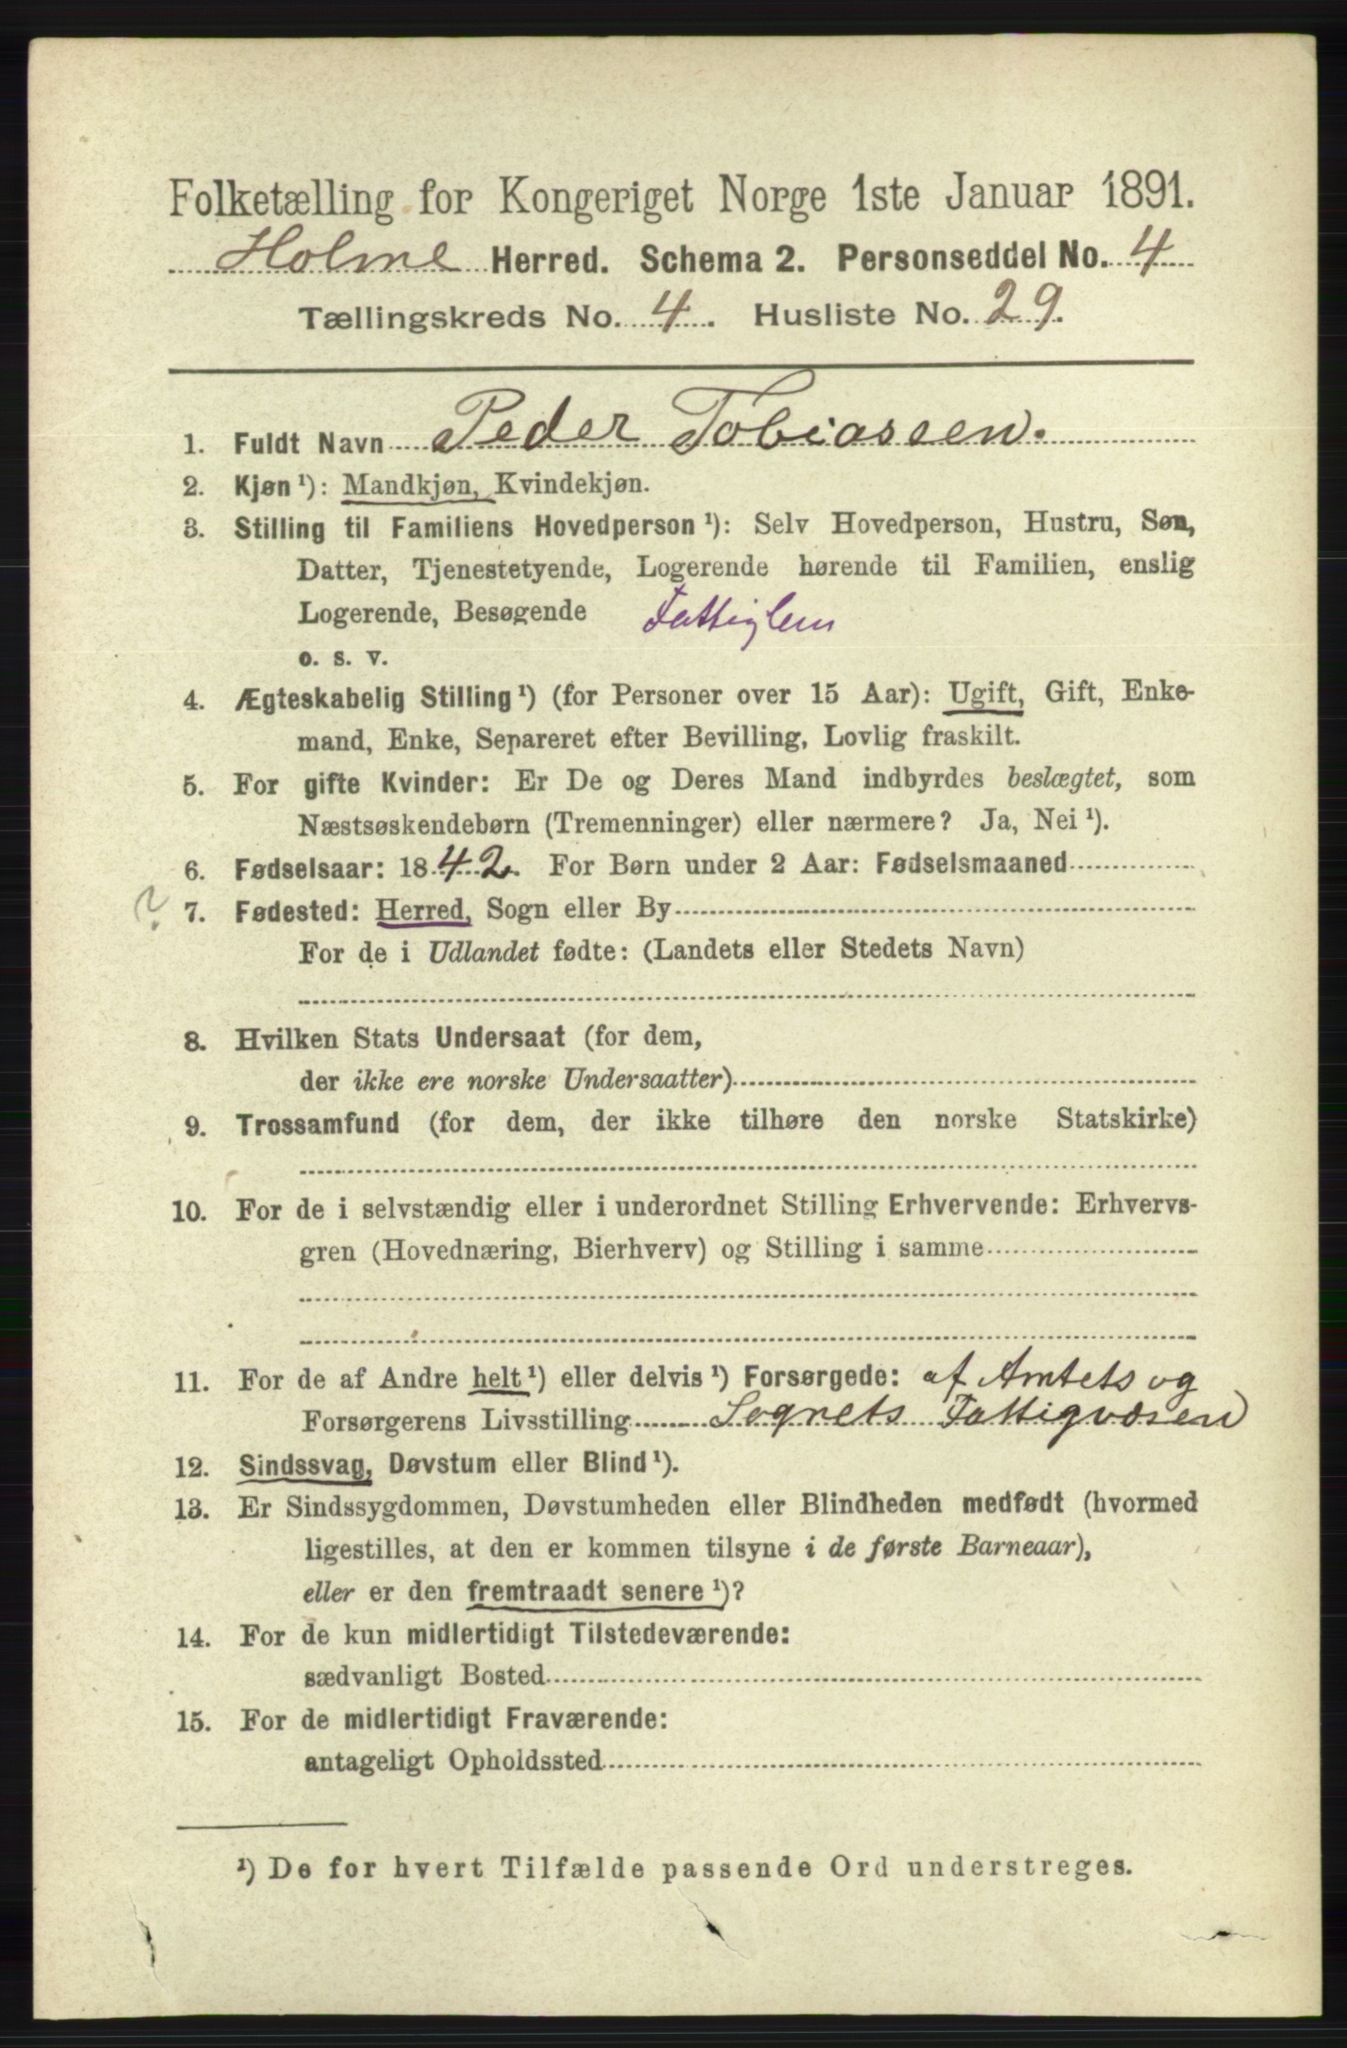 Folketælling for Kongeriget Norge 1ste Januar 1891.
Holme Herred. Schema 2. Personseddel No. 4
Tællingskreds No. 4. Husliste No. 29.
1. Fuldt Navn Peder Tobiassen.
2. Kjøn ¹): Mandkjøn, Kvindekjøn.
3. Stilling til Familiens Hovedperson ¹): Selv Hovedperson, Hustru, Søn,
Datter, Tjenestetyende, Logerende hørende til Familien, enslig
Logerende, Besøgende Fattiglem
o. s. v.
4. Ægteskabelig Stilling ¹) (for Personer over 15 Aar): Ugift, Gift, Enke-
mand, Enke, Separeret efter Bevilling, Lovlig fraskilt.
5. For gifte Kvinder: Er De og Deres Mand indbyrdes beslægtet, som
Næstsøskendebørn (Tremenninger) eller nærmere? Ja, Nei ¹).
6. Fødselsaar: 1842. For Børn under 2 Aar: Fødselsmaaned
? 7. Fødested: Herred, Sogn eller By
For de i Udlandet fødte: (Landets eller Stedets Navn)
8. Hvilken Stats Undersaat (for dem,
der ikke ere norske Undersaatter)
9. Trossamfund (for dem, der ikke tilhøre den norske Statskirke)
10. For de i selvstændig eller i underordnet Stilling Erhvervende: Erhvervs-
gren (Hovednæring, Bierhverv) og Stilling i samme
11. For de af Andre helt ¹) eller delvis ¹) Forsørgede: af Amtets og
Forsørgerens Livsstilling Sognets Fattigvæsen
12. Sindssvag, Døvstum eller Blind ¹).
13. Er Sindssygdommen, Døvstumheden eller Blindheden medfødt (hvormed
ligestilles, at den er kommen tilsyne i de første Barneaar),
eller er den fremtraadt senere ¹)?
14. For de kun midlertidigt Tilstedeværende:
sædvanligt Bosted
15. For de midlertidigt Fraværende:
antageligt Opholdssted
¹) De for hvert Tilfælde passende Ord understreges.